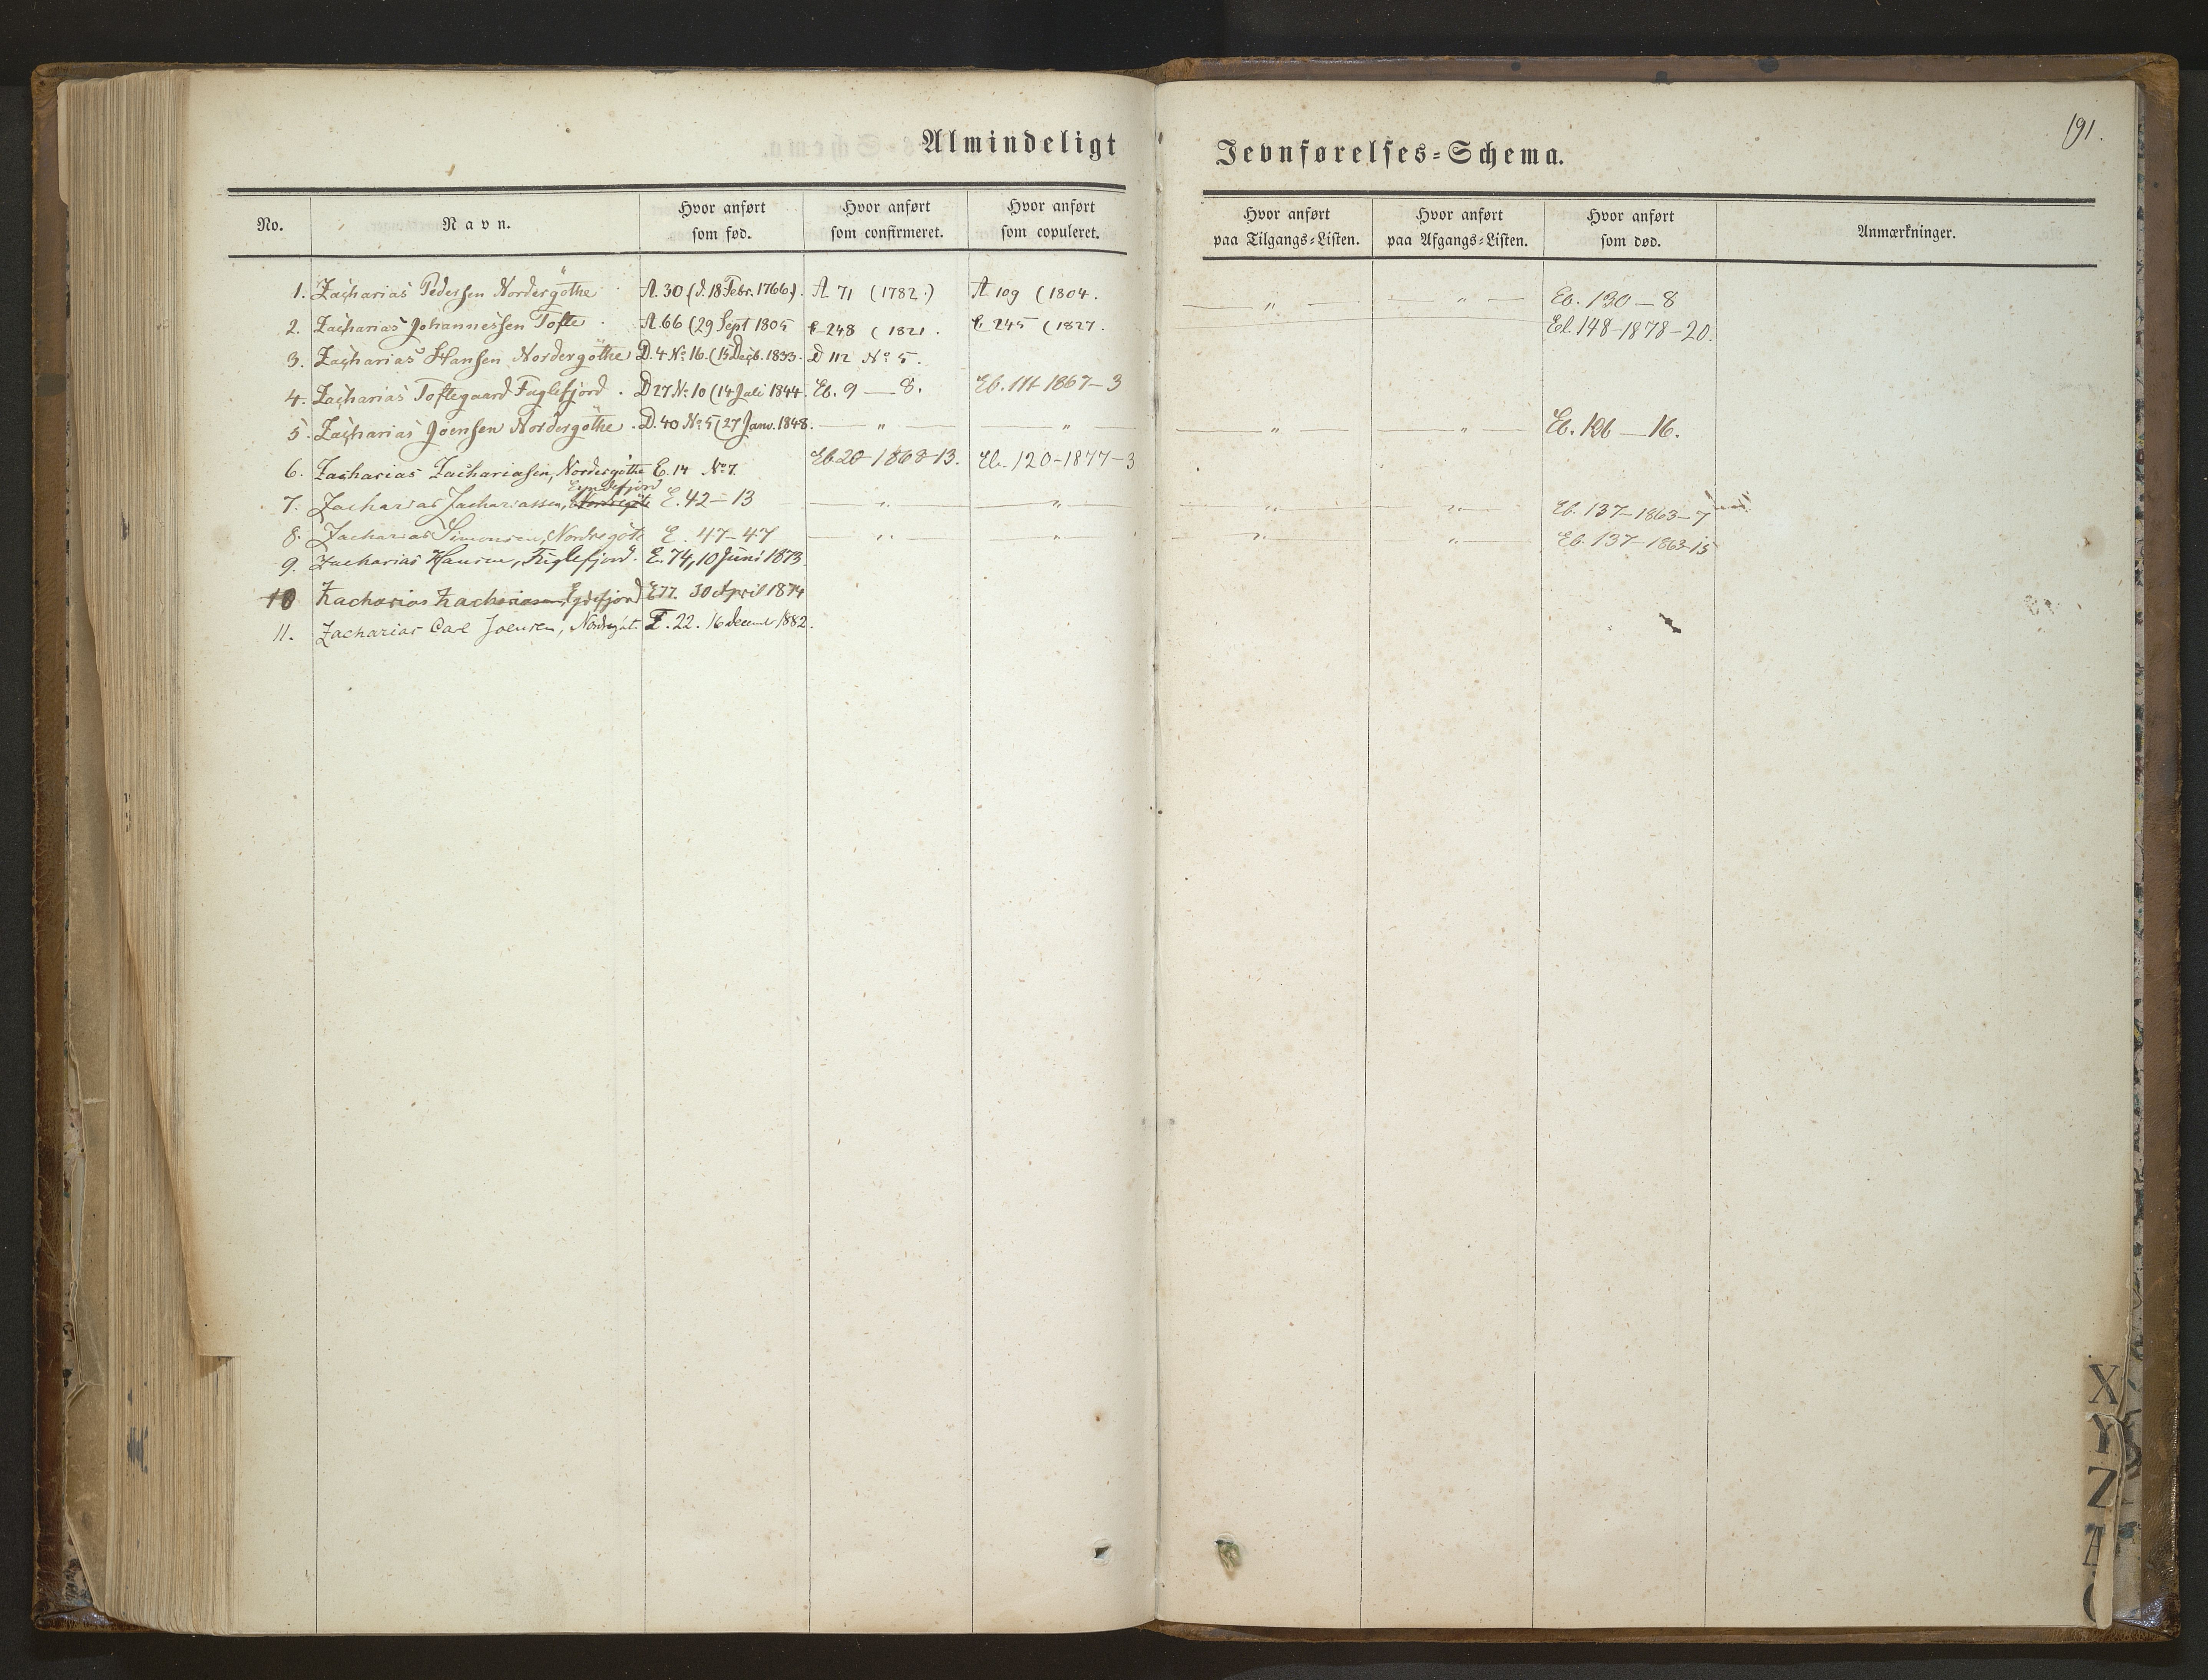 191.
Almindeligt Jevnførelses=Schema.
No. Navn. Hvor anført som fød. Hvor anført som confirmeret. Hvor anført som copuleret. Hvor anført paa Tilgangs=Listen. Hvor anført paa Afgangs=Listen. Hvor anført som død. Anmærkninger.
1. Zacharias Pedersen Nordergöthe A. 30 (d. 18 Febr. 1766). A 71 (1782.) A 109 (1804. — " — — " — Eb. 130 — 8
2. Zacharias Johannessen Tofte. A. 66 (29 Sept 1805 C 248 (1821. C 245 (1827. Eb. 148-1878-20.
3. Zacharias Hansen Nordergöthe D. 4 No 16. (15 Decb. 1833. D 112 No 5.
4. Zacharias Toftegaard Fuglefjord. D 27 No 10 (14 Juli 1844. Eb. 9 — 8. Eb. 111-1867-3
5. Zacharias Joensen Nordergöthe. D. 40 No 5 (27 Janv. 1848. — " — — " — — " — — " — Eb. 136 — 16.
6. Zacharias Zachariasen, Nordergöthe E. 14 No 7. Eb 20-1868-13. Eb. 120-1877-3
7. Zacharias Zachariassen, Nordregöte E. 42-13 — " — — " — — " — — " — Eb. 137-1863-7
8. Zacharias Simonsen, Nordregöte E. 47-47 — " — — " — — " — — " — Eb. 137-1863-15
9. Zacharias Hansen, Fuglefjord. E. 74, 10 Juni 1873.
10 Zacharias Zachariasen E77. 30 April 1874
11. Zacharias Carl Joensen, Nordregöt. F. 22. 16 decembr 1882.
X
Y
Z